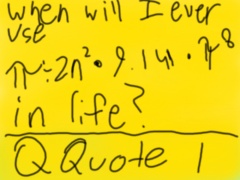 when will I ever
use
π÷2n²•9.141•π⁸
in life?
Q Quote 1